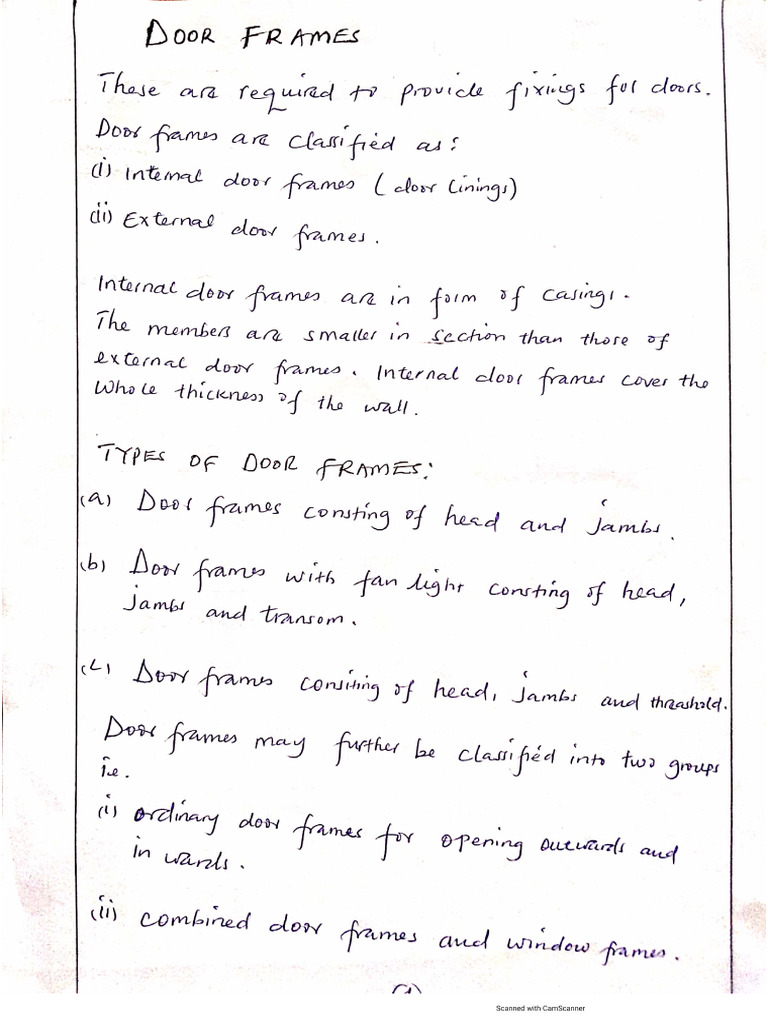 DOOR FRAMES
These are required to provide fixings for doors.
Door frames are classified as:
(i) Internal door frames (door linings)
(ii) External door frames.
Internal door frames are in form of casings.
The members are smaller in section than those of
external door frames. Internal door frames cover the
whole thickness of the wall.
TYPES OF DOOR FRAMES:
(a) Door frames consting of head and jambs.
(b) Door frames with fan light consting of head,
jambs and transom.
(c) Door frames consiting of head, jambs and threashold.
Door frames may further be classified into two groups
i.e.
(i) ordinary door frames for opening outwards and
in wards.
(ii) combined door frames and window frames.
Scanned with CamScanner